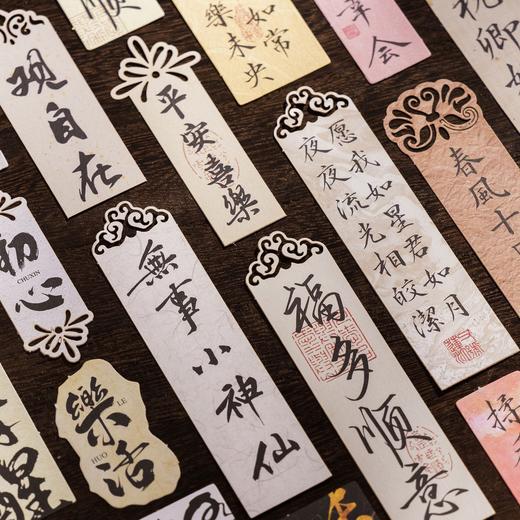 顺
如常
樂未央
幸会
祝卿如
观自在
平安喜樂
愿我如星君如月
夜夜流光相皎潔
春風十
初心
CHUXIN
無事小神仙
福多顺意
樂活
LE
HUO
醒
揉